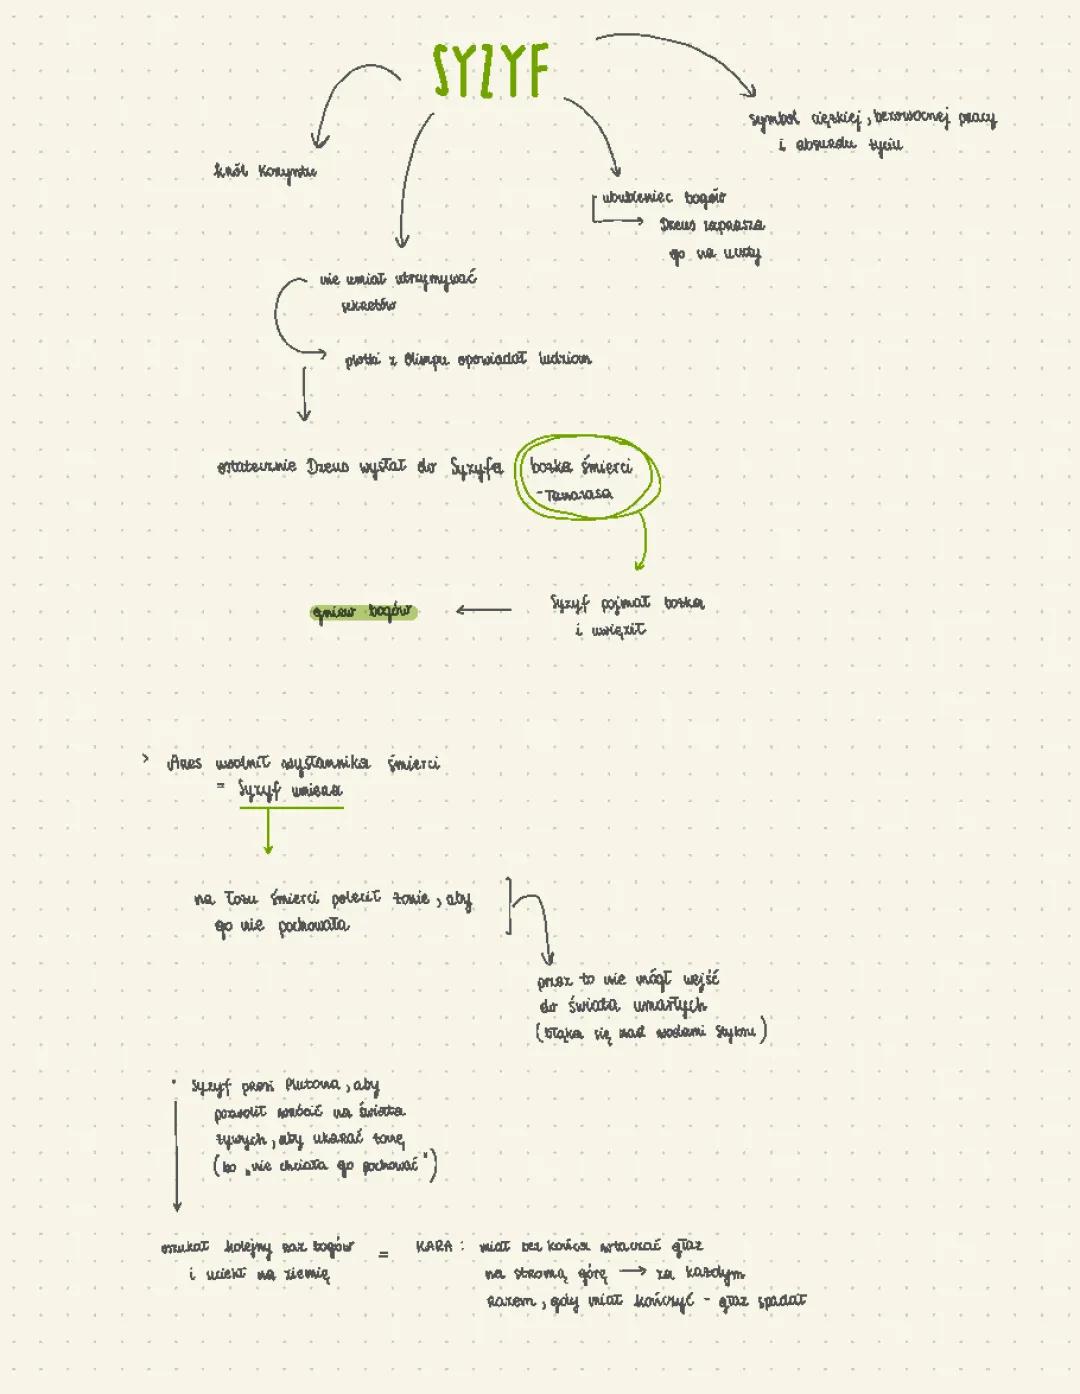 SYZYF
symbol ciężkiej, bezowocnej pracy
i absurdu życiu
król Koryntu
ulubieniec bogów
Dzeus zaprasza
go na uczty
nie umiał utrzymywać
sekretów
plotki z Olimpu opowiadał ludziom
ostatecznie Dzeus wysłał do Syzyfa
bożka śmierci
- Tanatosa
Syzyf pojmał bożka
i uwięził
gniew bogów
> Ares uwolnił wysłannika śmierci
= Syzyf umiera
na łożu śmierci polecił żonie, aby
go nie pochowała
przez to nie mógł wejść
do świata umarłych
(błąka się nad wodami Styksu)
• Syzyf prosi Plutona, aby
pozwolił wrócić na świata
żywych, aby ukarać żonę
(bo „nie chciała go pochować")
oszukał kolejny raz bogów
i uciekł na ziemię
=
KARA: miał bez końca wtaczać głaz
na stromą górę → za każdym
razem, gdy miał kończyć - głaz spadał